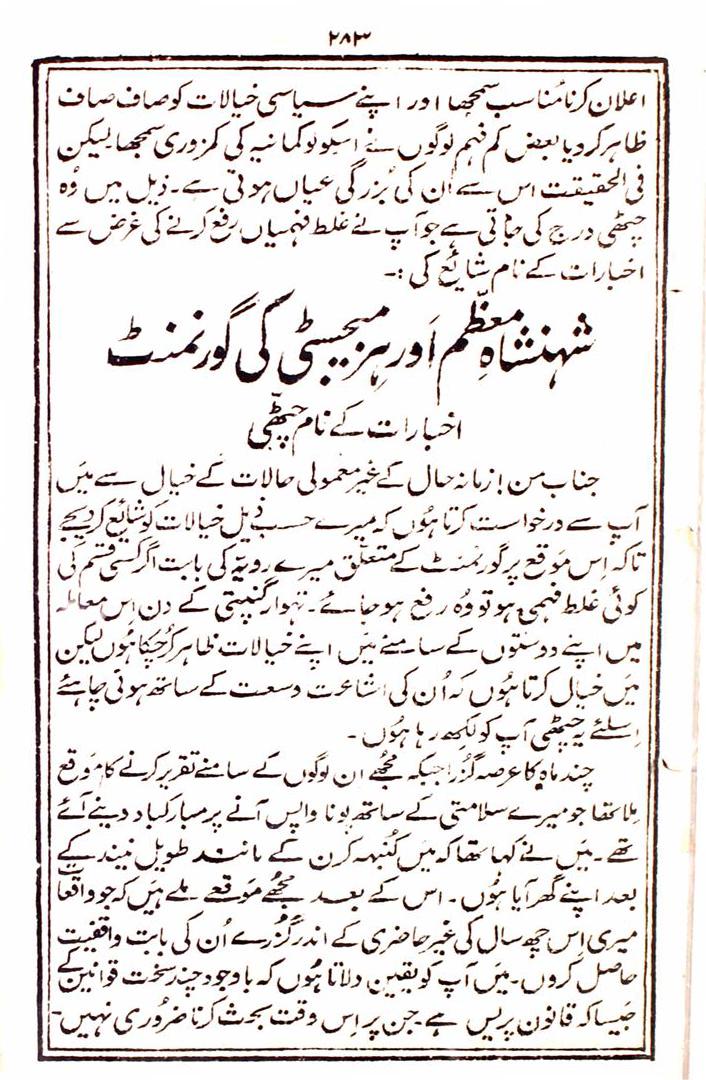 ۲۸۳
اعلان کرنا مناسب سمجھا اور اپنے سیاسی خیالات کو صاف صاف
ظاہر کر دیا بعض کم فہم لوگوں نے اسکو لوکمانیہ کی کمزوری سمجھا لیکن
فی الحقیقت اس سے اُن کی بُزرگی عیاں ہوتی ہے۔ ذیل میں وُہ
چٹھی درج کی جاتی ہے جو آپ نے غلط فہمیاں رفع کرنے کی غرض سے
اخبارات کے نام شایٔع کی :۔
شہنشاہِ معظّم اَور ہِز میجسٹی کی گورنمنٹ
اخبارات کے نام چٹھّی
جناب من! زمانہ حال کے غیر معمولی حالات کے خیال سے مَیں
آپ سے درخواست کرتا ہُوں کہ میرے حسب ذیل خیالات کو شایٔع کر دیجیے
تاکہ اِس مَوقع پر گورنمنٹ کے متعلّق میرے رویّہ کی بابت اگر کسی قسم کی
کوئی غلط فہمی ہو تو وُہ رفع ہو جائے۔ تہوار گنپتی کے دن اِس معاملہ
میں اپنے دوستوں کے سامنے مَیں اپنے خیالات ظاہر کر چُکا ہُوں لیکن
مَیں خیال کرتا ہُوں کہ اُن کی اشاعت وسعت کے ساتھ ہونی چاہئے
اِسلئے یہ چٹھی آپ کو لکھ رہا ہُوں۔
چند ماہ کا عرصہ گُزرا جبکہ مُجھے ان لوگوں کے سامنے تقریر کرنے کا مَوقع
مِلا تھا جو میرے سلامتی کے ساتھ پونا واپس آنے پر مبارکباد دینے آئے
تھے۔ مَیں نے کہا تھا کہ مَیں کُنبھہ کرن کے مانند طویل نیند کے
بعد اپنے گھر آیا ہُوں۔ اس کے بعد مُجھے مَوقعے ملے ہیَں کہ جو واقعات
میری اِس چھ سال کی غیر حاضری کے اندر گُزرے اُن کی بابت واقفیت
حاصل کروں۔ مَیں آپ کو یقین دلاتا ہُوں کہ باوجود چند سخت قوانین کے
جَیسا کہ قانون پریس ہے۔ جن پر اِس وقت بحث کرنا ضرُوری نہیں۔